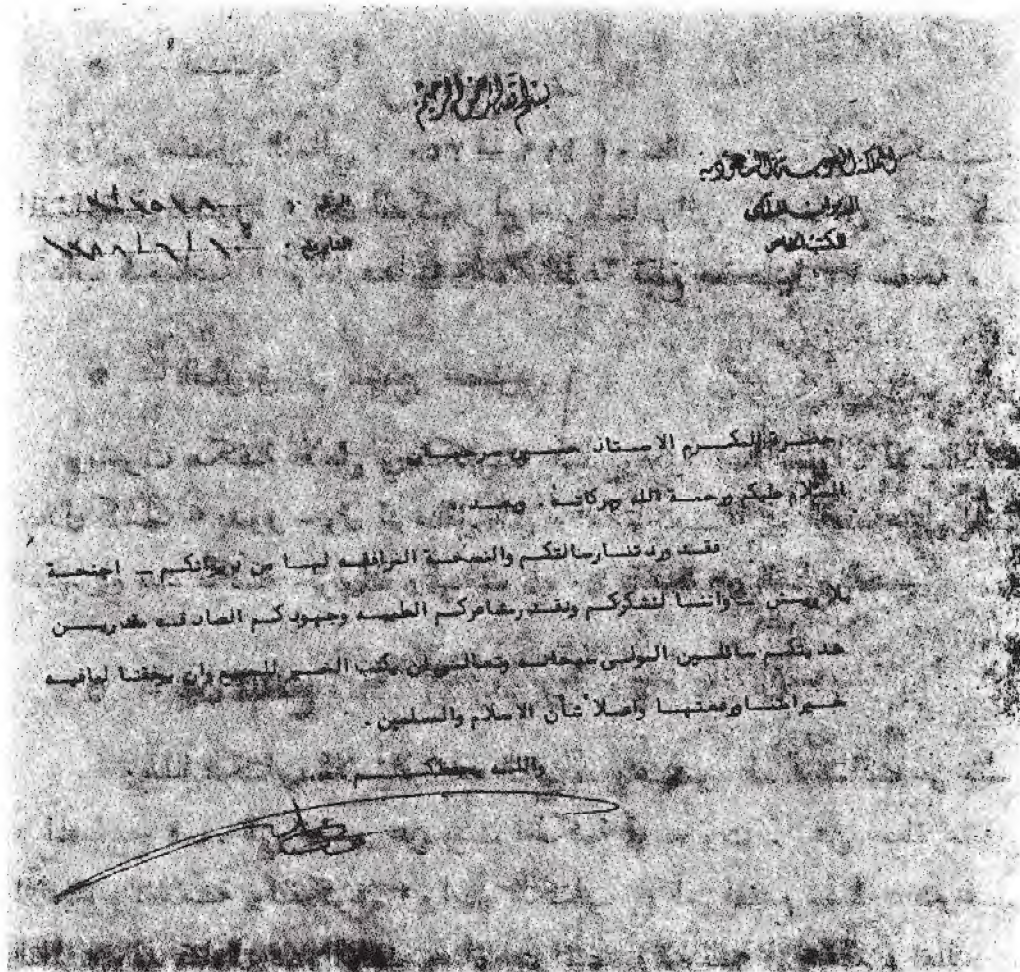 بسم الله الرحمن الرحيم
المملكة العربية السعودية
الديوان الملكي
المكتب الخاص
الرقم :
التاريخ :
حضرة المكرم الاستاذ
السلام عليكم ورحمة الله وبركاته . وبعد ..
فقد وردتنا رسالتكم والنسخة المرافقه لها من ديوانكم ــ اجنحة
بلا ريش ــ واننا لنشكركم ونقدر مشاعركم الطيبه وجهودكم الصادقه مقدرين
هديتكم سائلين المولى سبحانه وتعالى ان يكتب الخير للجميع وان يوفقنا لمافيه
خير امتنا ورفعتها واعلاً شأن الاسلام والمسلمين .
والله يحفظكم